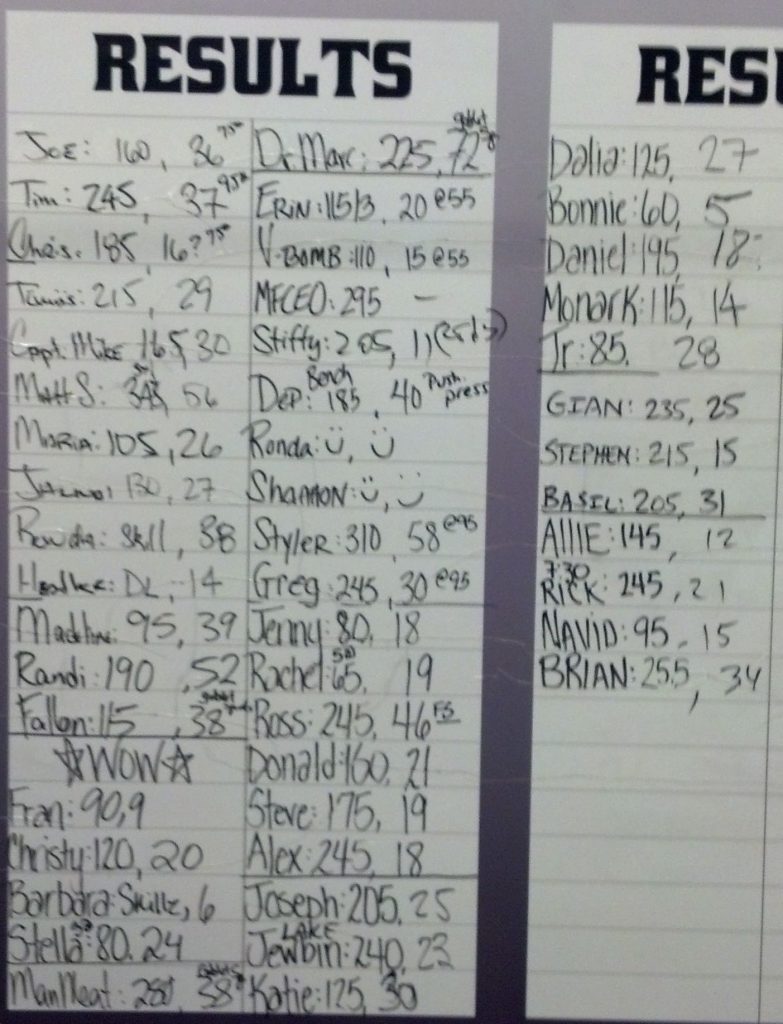 RESULTS
JOE: 160, 36 75#
Tim: 245, 37 95#
Chris: 185, 16? 75
: 215, 29
Capt. Mike 165, 30
Matt S: 56
Maria: 105, 26
130, 27
Rowda: Skill, 38
Heather: DL, 14
Madeline: 95, 39
Randi: 190, 52
Fallon: 115, 38
☆WOW☆
Fran: 90, 9
Christy: 120, 20
Barbara: Skillz, 6
Stella: 80, 24
ManMeat: 280, 38
Dr Marc: 225, 72
ERIN: 115/3, 20 @55
V-BOMB: 110, 15 @55
MFCEO: 295 –
Stiffy: 205, 11
DEP: Bench 185, 40 Push press
Ronda: ü, ü
SHANNON: ü, ü
STYLER: 310, 58 @95
Greg: 245, 30 @95
Jenny: 80, 18
Rachel: 65, 19
Ross: 245, 46 FS
Donald: 160, 21
Steve: 175, 19
Alex: 245, 18
Joseph: 205, 25
LAKE
Jewbin: 240, 23
Katie: 125, 30
RESU
Dalia: 125, 27
Bonnie: 60, 5
Daniel: 195, 18
Monark: 115, 14
Jr: 85, 28
GIAN: 235, 25
STEPHEN: 215, 15
BASIL: 205, 31
ALLIE: 145, 12
7:30
RICK: 245, 21
NAVID: 95, 15
BRIAN: 255, 34